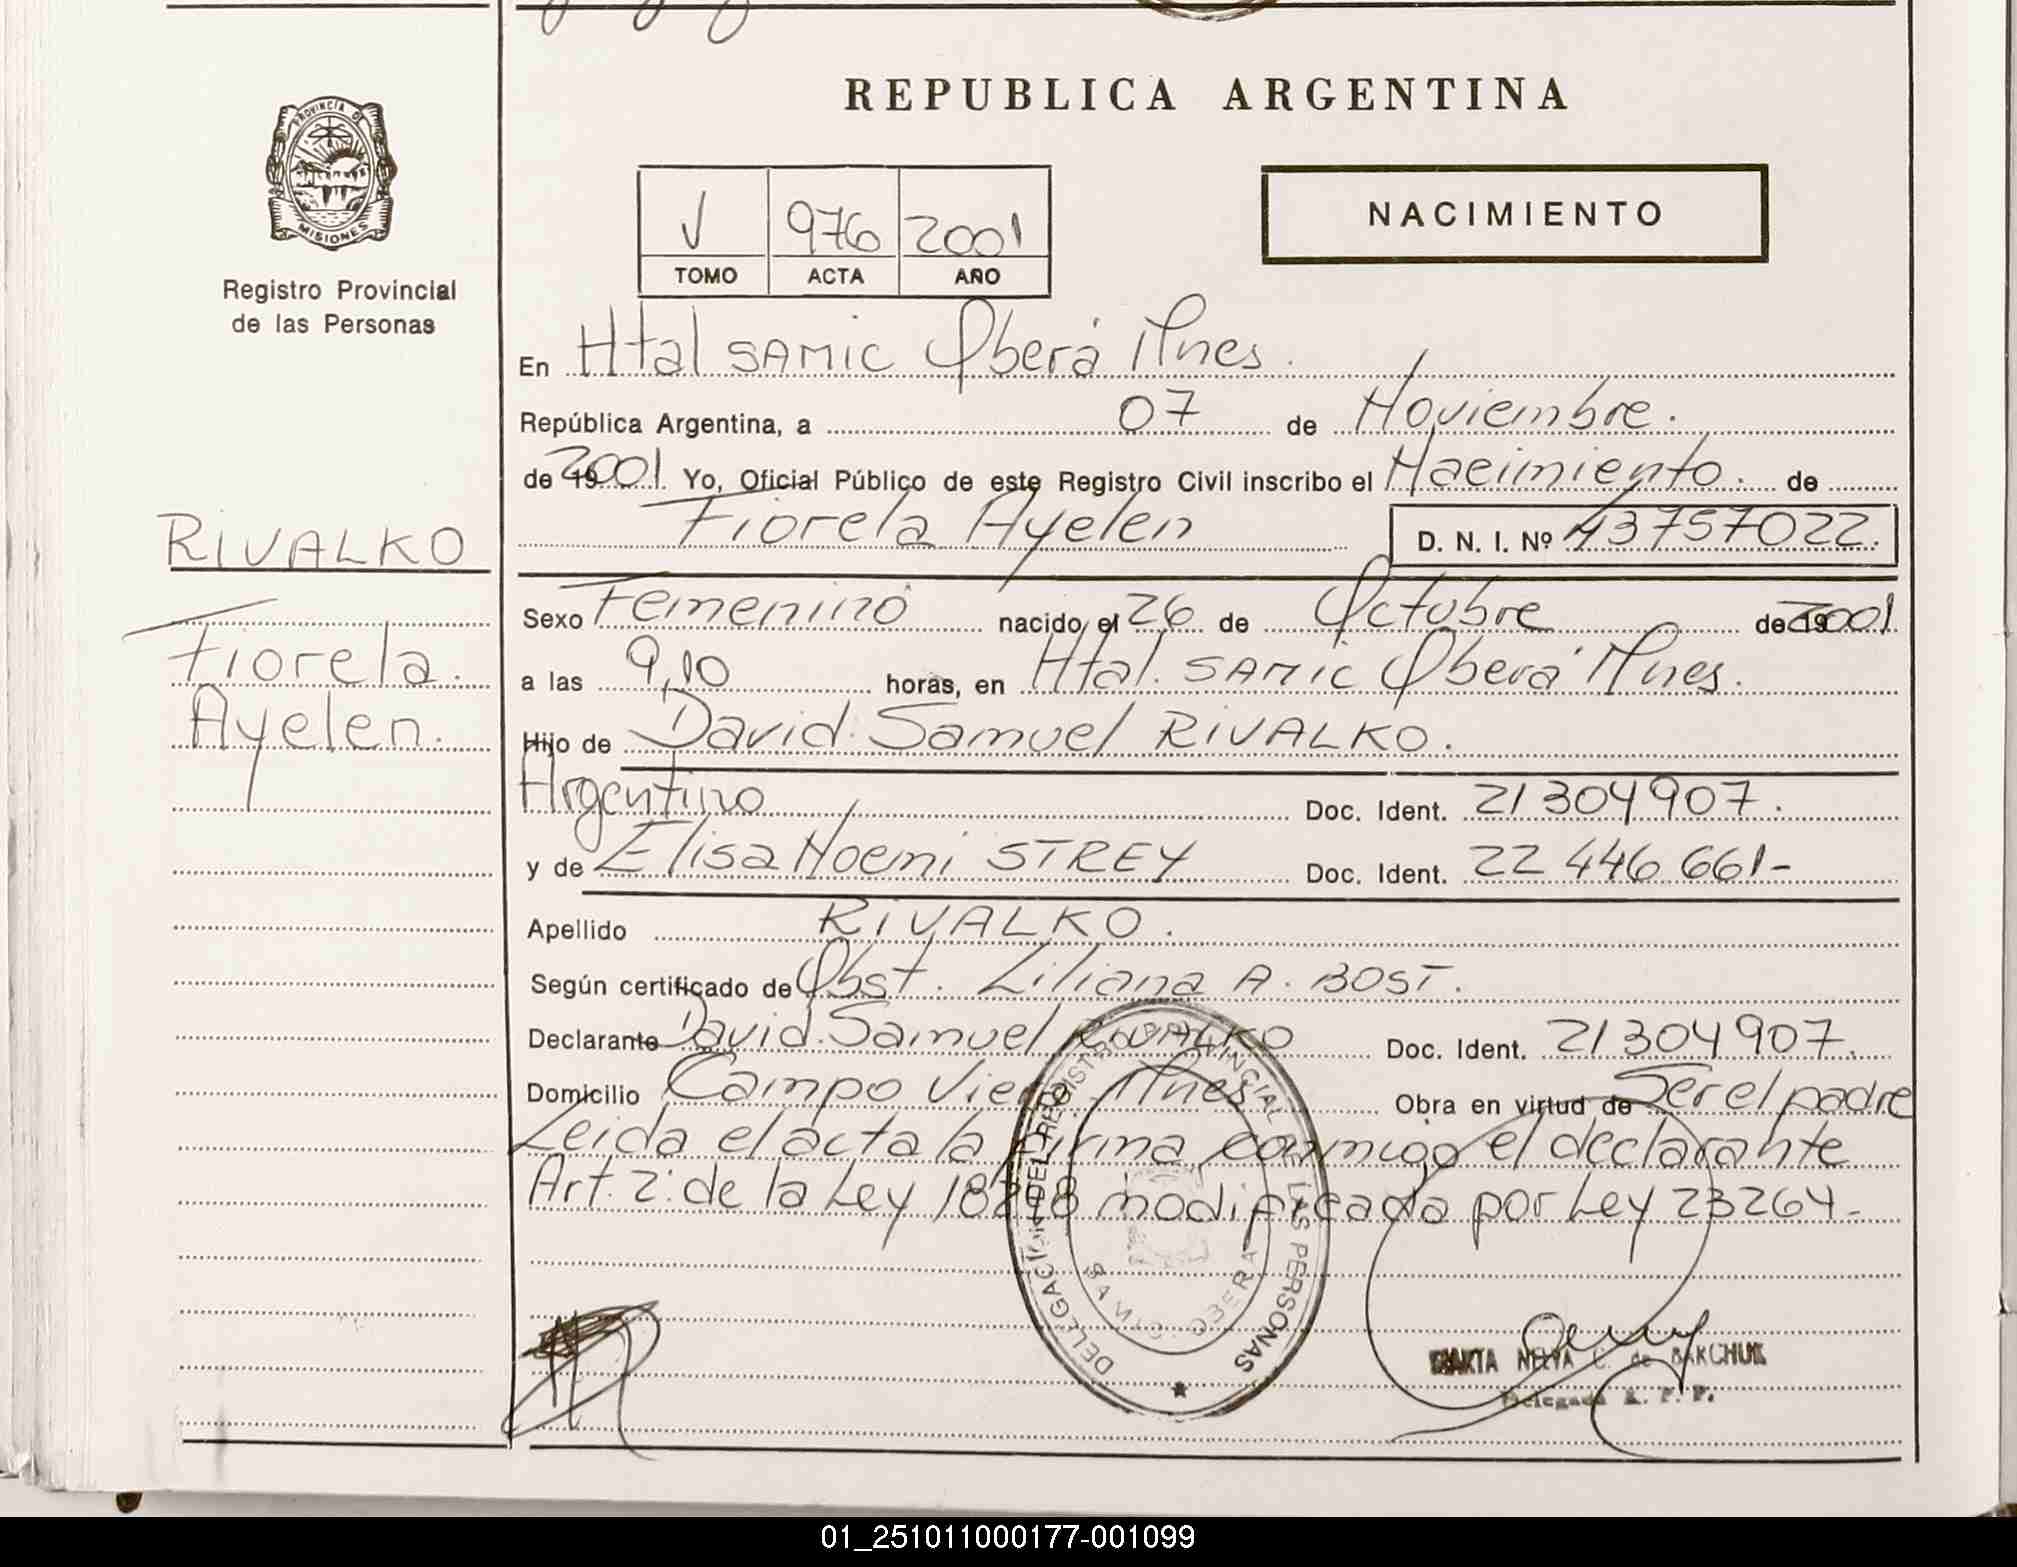 REPUBLICA ARGENTINA
PROVINCIA DE MISIONES
Registro Provincial
de las Personas
V 976 2001
TOMO ACTA AÑO
NACIMIENTO
En Htal SAMIC Oberá Mnes.
República Argentina, a 07 de Noviembre.
de 19 2001. Yo, Oficial Público de este Registro Civil inscribo el Nacimiento. de
Fiorela Ayelen D. N. I. Nº 43757022.
RIVALKO
Fiorela.
Ayelen.
Sexo Femenino nacido el 26 de Octubre de 19 2001
a las 9,10 horas, en Htal. SAMIC Oberá Mnes.
Hijo de David Samuel RIVALKO.
Argentino Doc. Ident. 21304907.
y de Elisa Noemi STREY Doc. Ident. 22 446 661-
Apellido RIVALKO.
Según certificado de Obst. Liliana A. BOST.
Declarante David Samuel RIVALKO Doc. Ident. 21304907.
Domicilio Campo Viera Mnes Obra en virtud de Ser el padre
Leida el acta la firma conmigo el declarante
Art. 2: de la Ley 18248 modificada por Ley 23264-
DELEGACION DEL REGISTRO PROVINCIAL DE LAS PERSONAS
SAMIC - OBERA
MARTA NELYA C. de BAKCHUK
Delegada R. P. P.
01_251011000177-001099